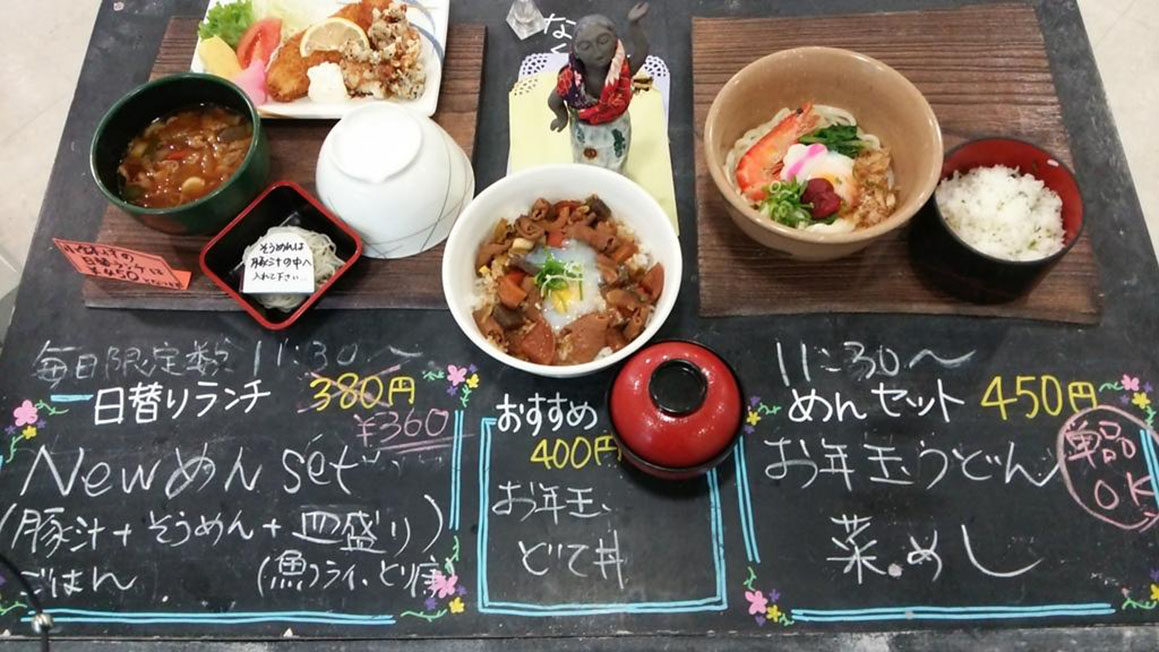 な
く
そうめんは
豚汁の中へ
入れて下さい…
日替ランチは
¥450
毎日限定数 11:30〜
日替りランチ 380円
¥360
Newめん set
(豚汁+そうめん+皿盛り)
ごはん (魚フライ、とり唐
おすすめ
400円
お年玉、
どて丼
11:30〜
めんセット 450円
お年玉うどん
単品
OK
菜めし